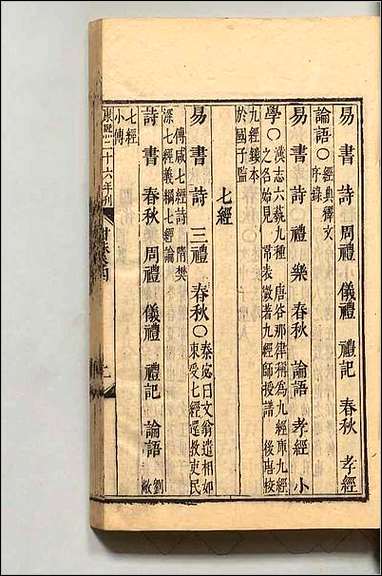 易 書 詩 周禮 儀禮 禮記 春秋 孝經
論語〇經典釋文
序錄
易 書 詩 禮 樂 春秋 論語 孝經 小
學〇漢志六藝九種唐谷那律稱爲九經庫九經
之名始見常袁徵著九經師授譜後唐校
九經鏤本
於國子監
七經
易 書 詩 三禮 春秋〇秦宓曰文翁遣相如
東受七經還敎吏民
傅咸七經詩隋樊
深七經義綱七經論
詩 書 春秋 周禮 儀禮 禮記 論語 劉
敞
七經
小傳
康熙二十六年刊